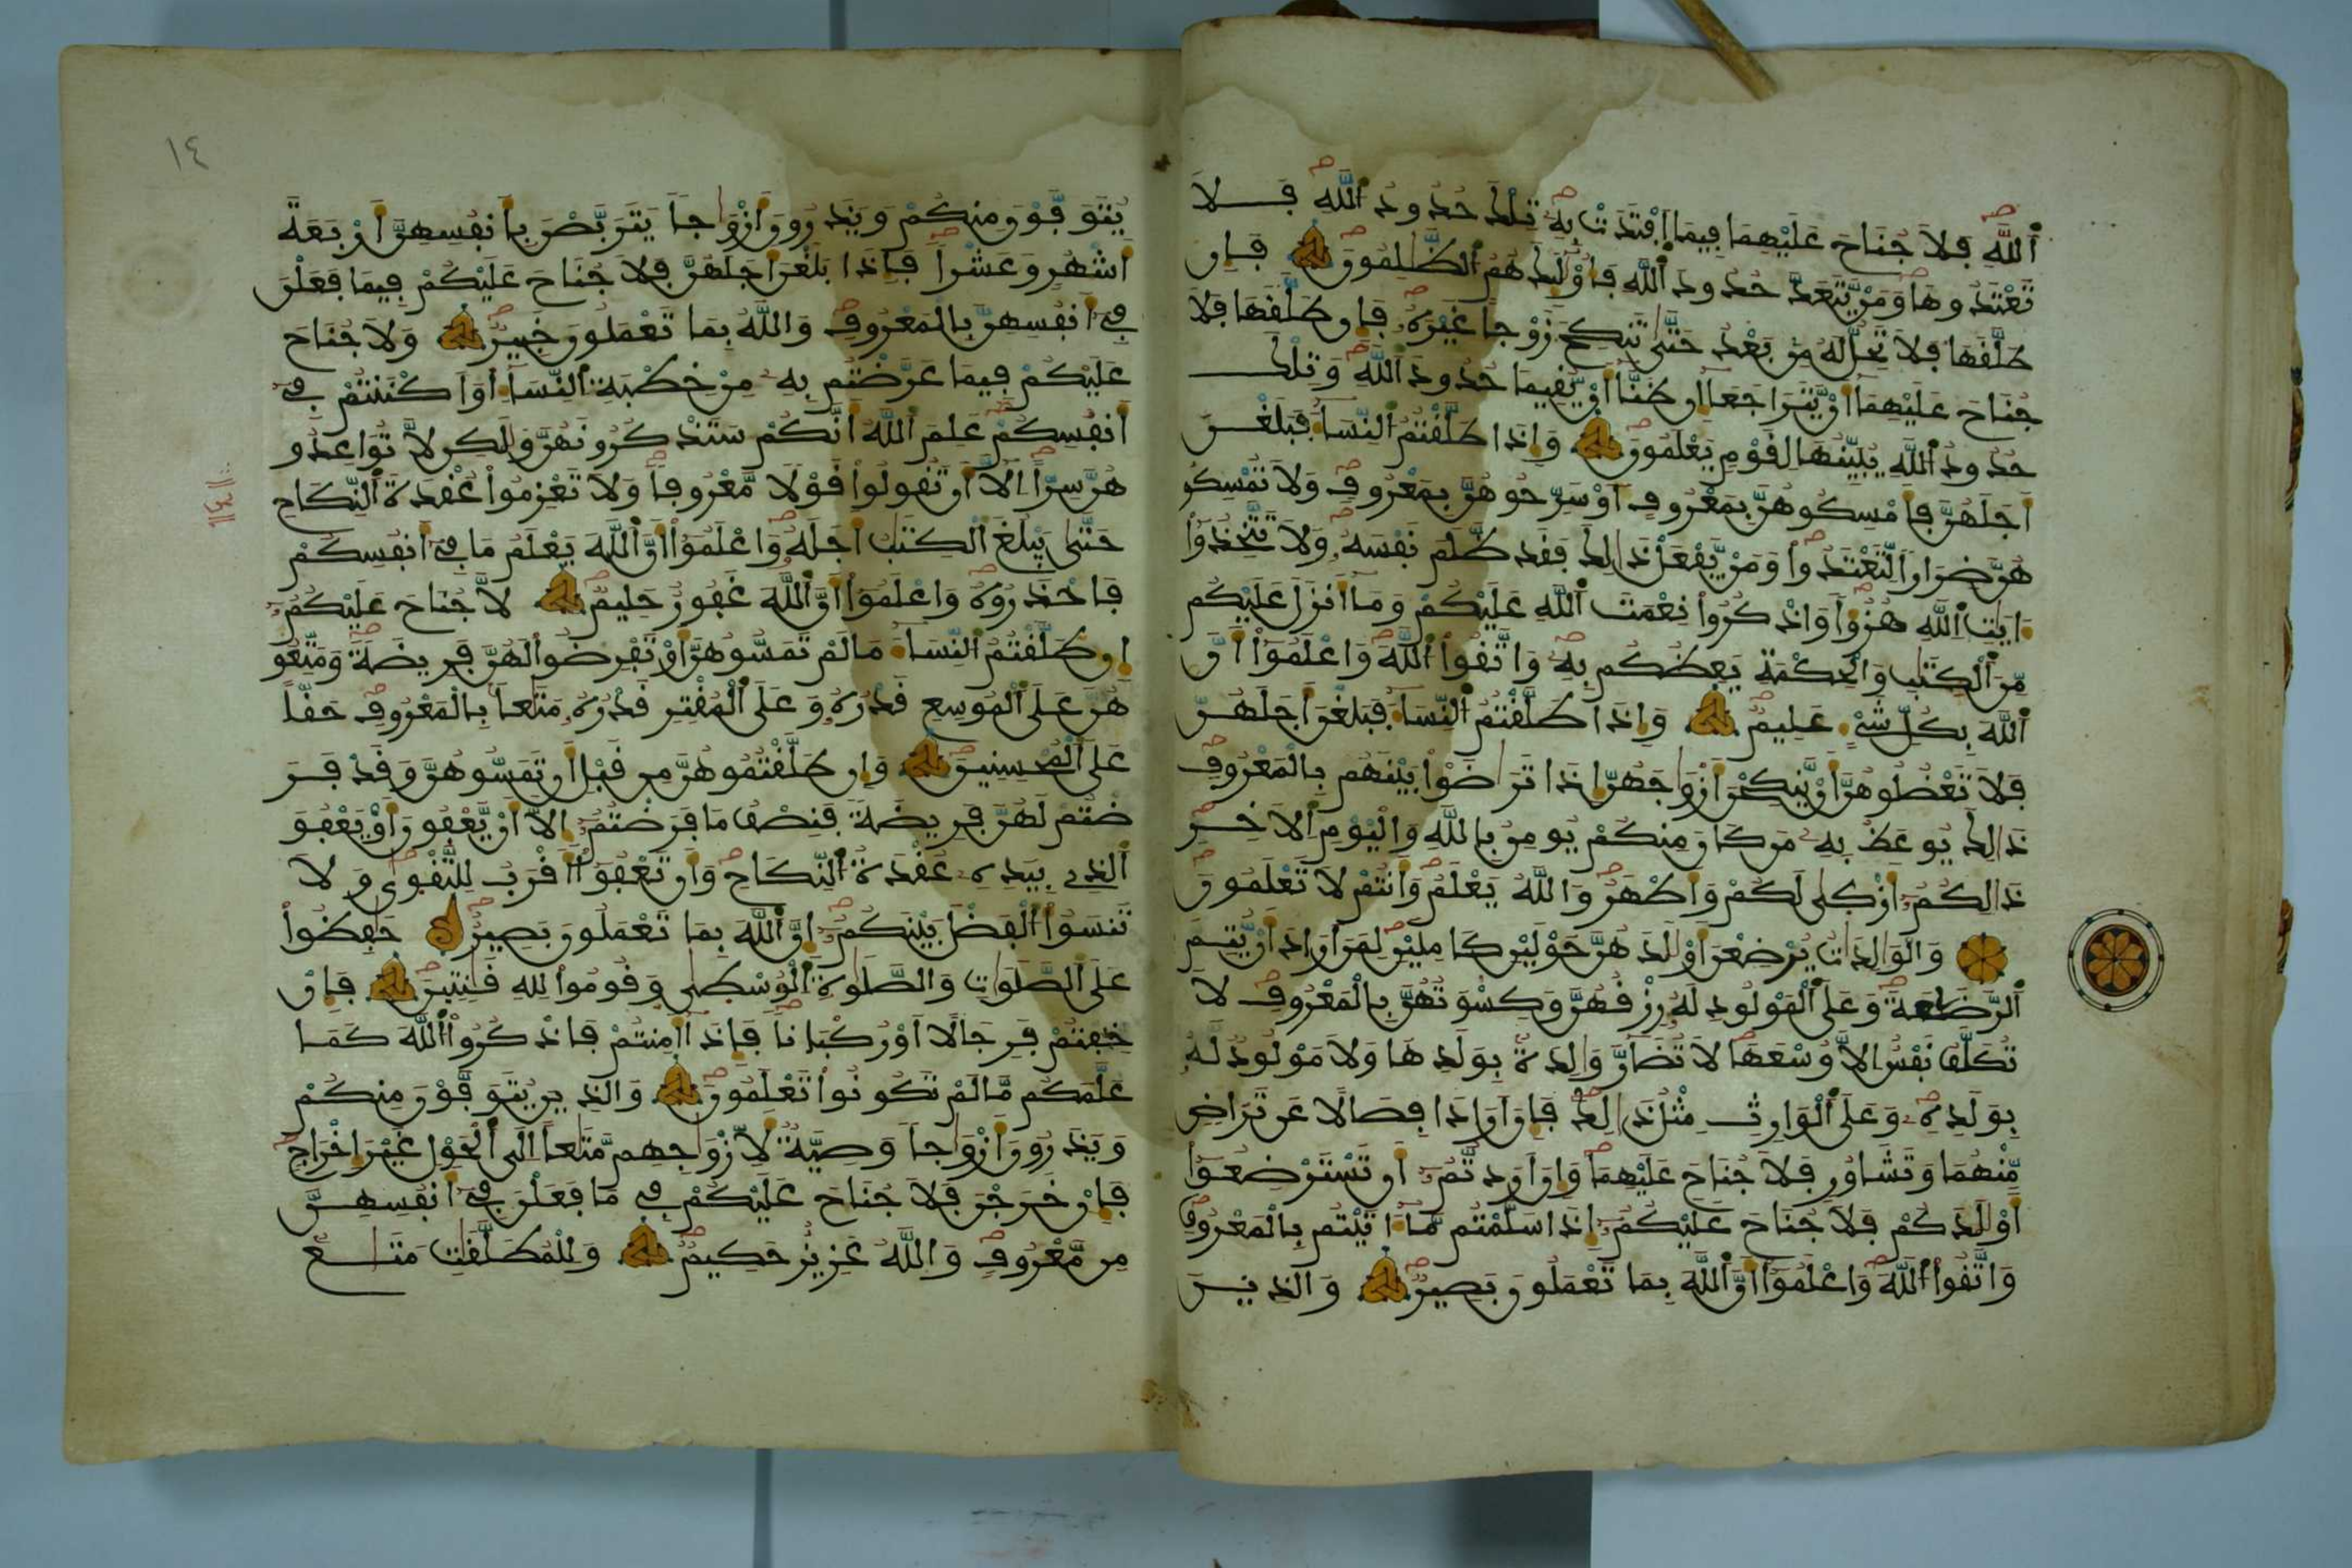 ٱللَّهِ فَلَا جُنَاحَ عَلَيْهِمَا فِيمَا ٱفْتَدَتْ بِهِۦ تِلْكَ حُدُودُ ٱللَّهِ فَلَا
تَعْتَدُوهَا وَمَنْ يَّتَعَدَّ حُدُودَ ٱللَّهِ فَأُوْلَٰئِكَ هُمُ ٱلظَّٰلِمُونَ فَإِن
طَلَّقَهَا فَلَا تَحِلُّ لَهُۥ مِنۢ بَعْدُ حَتَّىٰ تَنكِحَ زَوْجاً غَيْرَهُۥ فَإِن طَلَّقَهَا فَلَا
جُنَاحَ عَلَيْهِمَا أَنْ يَّتَرَاجَعَا إِن ظَنَّا أَنْ يُّقِيمَا حُدُودَ ٱللَّهِ وَتِلْكَ
حُدُودُ ٱللَّهِ يُبَيِّنُهَا لِقَوْمٍ يَعْلَمُونَ وَإِذَا طَلَّقْتُمُ ٱلنِّسَآءَ فَبَلَغْنَ
أَجَلَهُنَّ فَأَمْسِكُوهُنَّ بِمَعْرُوفٍ أَوْ سَرِّحُوهُنَّ بِمَعْرُوفٍ وَلَا تُمْسِكُو
هُنَّ ضِرَاراً لِّتَعْتَدُواْ وَمَنْ يَّفْعَلْ ذَٰلِكَ فَقَد ظَّلَمَ نَفْسَهُۥ وَلَا تَتَّخِذُوٓاْ
ءَايَٰتِ ٱللَّهِ هُزُؤاً وَٱذْكُرُواْ نِعْمَتَ ٱللَّهِ عَلَيْكُمْ وَمَآ أَنزَلَ عَلَيْكُم
مِّنَ ٱلْكِتَٰبِ وَٱلْحِكْمَةِ يَعِظُكُم بِهِۦ وَٱتَّقُواْ ٱللَّهَ وَٱعْلَمُوٓاْ أَنَّ
ٱللَّهَ بِكُلِّ شَيْءٍ عَلِيمٌ وَإِذَا طَلَّقْتُمُ ٱلنِّسَآءَ فَبَلَغْنَ أَجَلَهُنَّ
فَلَا تَعْضُلُوهُنَّ أَنْ يَّنكِحْنَ أَزْوَٰجَهُنَّ إِذَا تَرَٰضَوْاْ بَيْنَهُم بِٱلْمَعْرُوفِ
ذَٰلِكَ يُوعَظُ بِهِۦ مَن كَانَ مِنكُمْ يُومِنُ بِٱللَّهِ وَٱلْيَوْمِ ٱلَاخِرِ
ذَٰلِكُمُۥٓ أَزْكَىٰ لَكُمْ وَأَطْهَرُ وَٱللَّهُ يَعْلَمُ وَأَنتُمْ لَا تَعْلَمُونَ
وَٱلْوَٰلِدَٰتُ يُرْضِعْنَ أَوْلَٰدَهُنَّ حَوْلَيْنِ كَامِلَيْنِ لِمَنَ أَرَادَ أَنْ يُّتِمَّ
ٱلرَّضَٰعَةَ وَعَلَى ٱلْمَوْلُودِ لَهُۥ رِزْقُهُنَّ وَكِسْوَتُهُنَّ بِٱلْمَعْرُوفِ لَا
تُكَلَّفُ نَفْسٌ إِلَّا وُسْعَهَا لَا تُضَآرَّ وَٰلِدَةٌۢ بِوَلَدِهَا وَلَا مَوْلُودٌ لَّهُۥ
بِوَلَدِهِۦ وَعَلَى ٱلْوَارِثِ مِثْلُ ذَٰلِكَ فَإِنَ أَرَادَا فِصَالًا عَن تَرَاضٍ
مِّنْهُمَا وَتَشَاوُرٍ فَلَا جُنَاحَ عَلَيْهِمَا وَإِنَ أَرَدتُّمُۥٓ أَن تَسْتَرْضِعُوٓاْ
أَوْلَٰدَكُمْ فَلَا جُنَاحَ عَلَيْكُمُۥٓ إِذَا سَلَّمْتُم مَّآ ءَاتَيْتُم بِٱلْمَعْرُوفِ
وَٱتَّقُواْ ٱللَّهَ وَٱعْلَمُوٓاْ أَنَّ ٱللَّهَ بِمَا تَعْمَلُونَ بَصِيرٌ وَٱلَّذِينَ
١٤
يُتَوَفَّوْنَ مِنكُمْ وَيَذَرُونَ أَزْوَٰجاً يَتَرَبَّصْنَ بِأَنفُسِهِنَّ أَرْبَعَةَ
أَشْهُرٍ وَعَشْراً فَإِذَا بَلَغْنَ أَجَلَهُنَّ فَلَا جُنَاحَ عَلَيْكُمْ فِيمَا فَعَلْنَ
فِيٓ أَنفُسِهِنَّ بِٱلْمَعْرُوفِ وَٱللَّهُ بِمَا تَعْمَلُونَ خَبِيرٌ وَلَا جُنَاحَ
عَلَيْكُمْ فِيمَا عَرَّضْتُم بِهِۦ مِنْ خِطْبَةِ ٱلنِّسَآءِ أَوَ أَكْنَنتُمْ فِيٓ
أَنفُسِكُمْ عَلِمَ ٱللَّهُ أَنَّكُمْ سَتَذْكُرُونَهُنَّ وَلَٰكِن لَّا تُوَاعِدُو
هُنَّ سِرّاً إِلَّآ أَن تَقُولُواْ قَوْلًا مَّعْرُوفاً وَلَا تَعْزِمُواْ عُقْدَةَ ٱلنِّكَاحِ
حَتَّىٰ يَبْلُغَ ٱلْكِتَٰبُ أَجَلَهُۥ وَٱعْلَمُوٓاْ أَنَّ ٱللَّهَ يَعْلَمُ مَا فِيٓ أَنفُسِكُمْ
فَٱحْذَرُوهُ وَٱعْلَمُوٓاْ أَنَّ ٱللَّهَ غَفُورٌ حَلِيمٌ لَّا جُنَاحَ عَلَيْكُمُۥٓ
إِن طَلَّقْتُمُ ٱلنِّسَآءَ مَا لَمْ تَمَسُّوهُنَّ أَوْ تَفْرِضُواْ لَهُنَّ فَرِيضَةً وَمَتِّعُو
هُنَّ عَلَى ٱلْمُوسِعِ قَدْرُهُۥ وَعَلَى ٱلْمُقْتِرِ قَدْرُهُۥ مَتَٰعاً بِٱلْمَعْرُوفِ حَقّاً
عَلَى ٱلْمُحْسِنِينَ وَإِن طَلَّقْتُمُوهُنَّ مِن قَبْلِ أَن تَمَسُّوهُنَّ وَقَدْ فَرَ
ضْتُمْ لَهُنَّ فَرِيضَةً فَنِصْفُ مَا فَرَضْتُمُۥٓ إِلَّآ أَنْ يَّعْفُونَ أَوْ يَعْفُوَ
ٱلَّذِي بِيَدِهِۦ عُقْدَةُ ٱلنِّكَاحِ وَأَن تَعْفُوٓاْ أَقْرَبُ لِلتَّقْوَىٰ وَلَا
تَنسَوُاْ ٱلْفَضْلَ بَيْنَكُمُۥٓ إِنَّ ٱللَّهَ بِمَا تَعْمَلُونَ بَصِيرٌ حَٰفِظُواْ
عَلَى ٱلصَّلَوَٰتِ وَٱلصَّلَوٰةِ ٱلْوُسْطَىٰ وَقُومُواْ لِلهِ قَٰنِتِينَ فَإِنْ
خِفْتُمْ فَرِجَالًا أَوْ رُكْبَاناً فَإِذَآ أَمِنتُمْ فَٱذْكُرُواْ ٱللَّهَ كَمَا
عَلَّمَكُم مَّا لَمْ تَكُونُواْ تَعْلَمُونَ وَٱلَّذِينَ يُتَوَفَّوْنَ مِنكُمْ
وَيَذَرُونَ أَزْوَٰجاً وَصِيَّةٌ لِّأَزْوَٰجِهِم مَّتَٰعاً إِلَى ٱلْحَوْلِ غَيْرَ إِخْرَاجٍ
فَإِنْ خَرَجْنَ فَلَا جُنَاحَ عَلَيْكُمْ فِي مَا فَعَلْنَ فِيٓ أَنفُسِهِنَّ
مِن مَّعْرُوفٍ وَٱللَّهُ عَزِيزٌ حَكِيمٌ وَلِلْمُطَلَّقَٰتِ مَتَٰعٌ